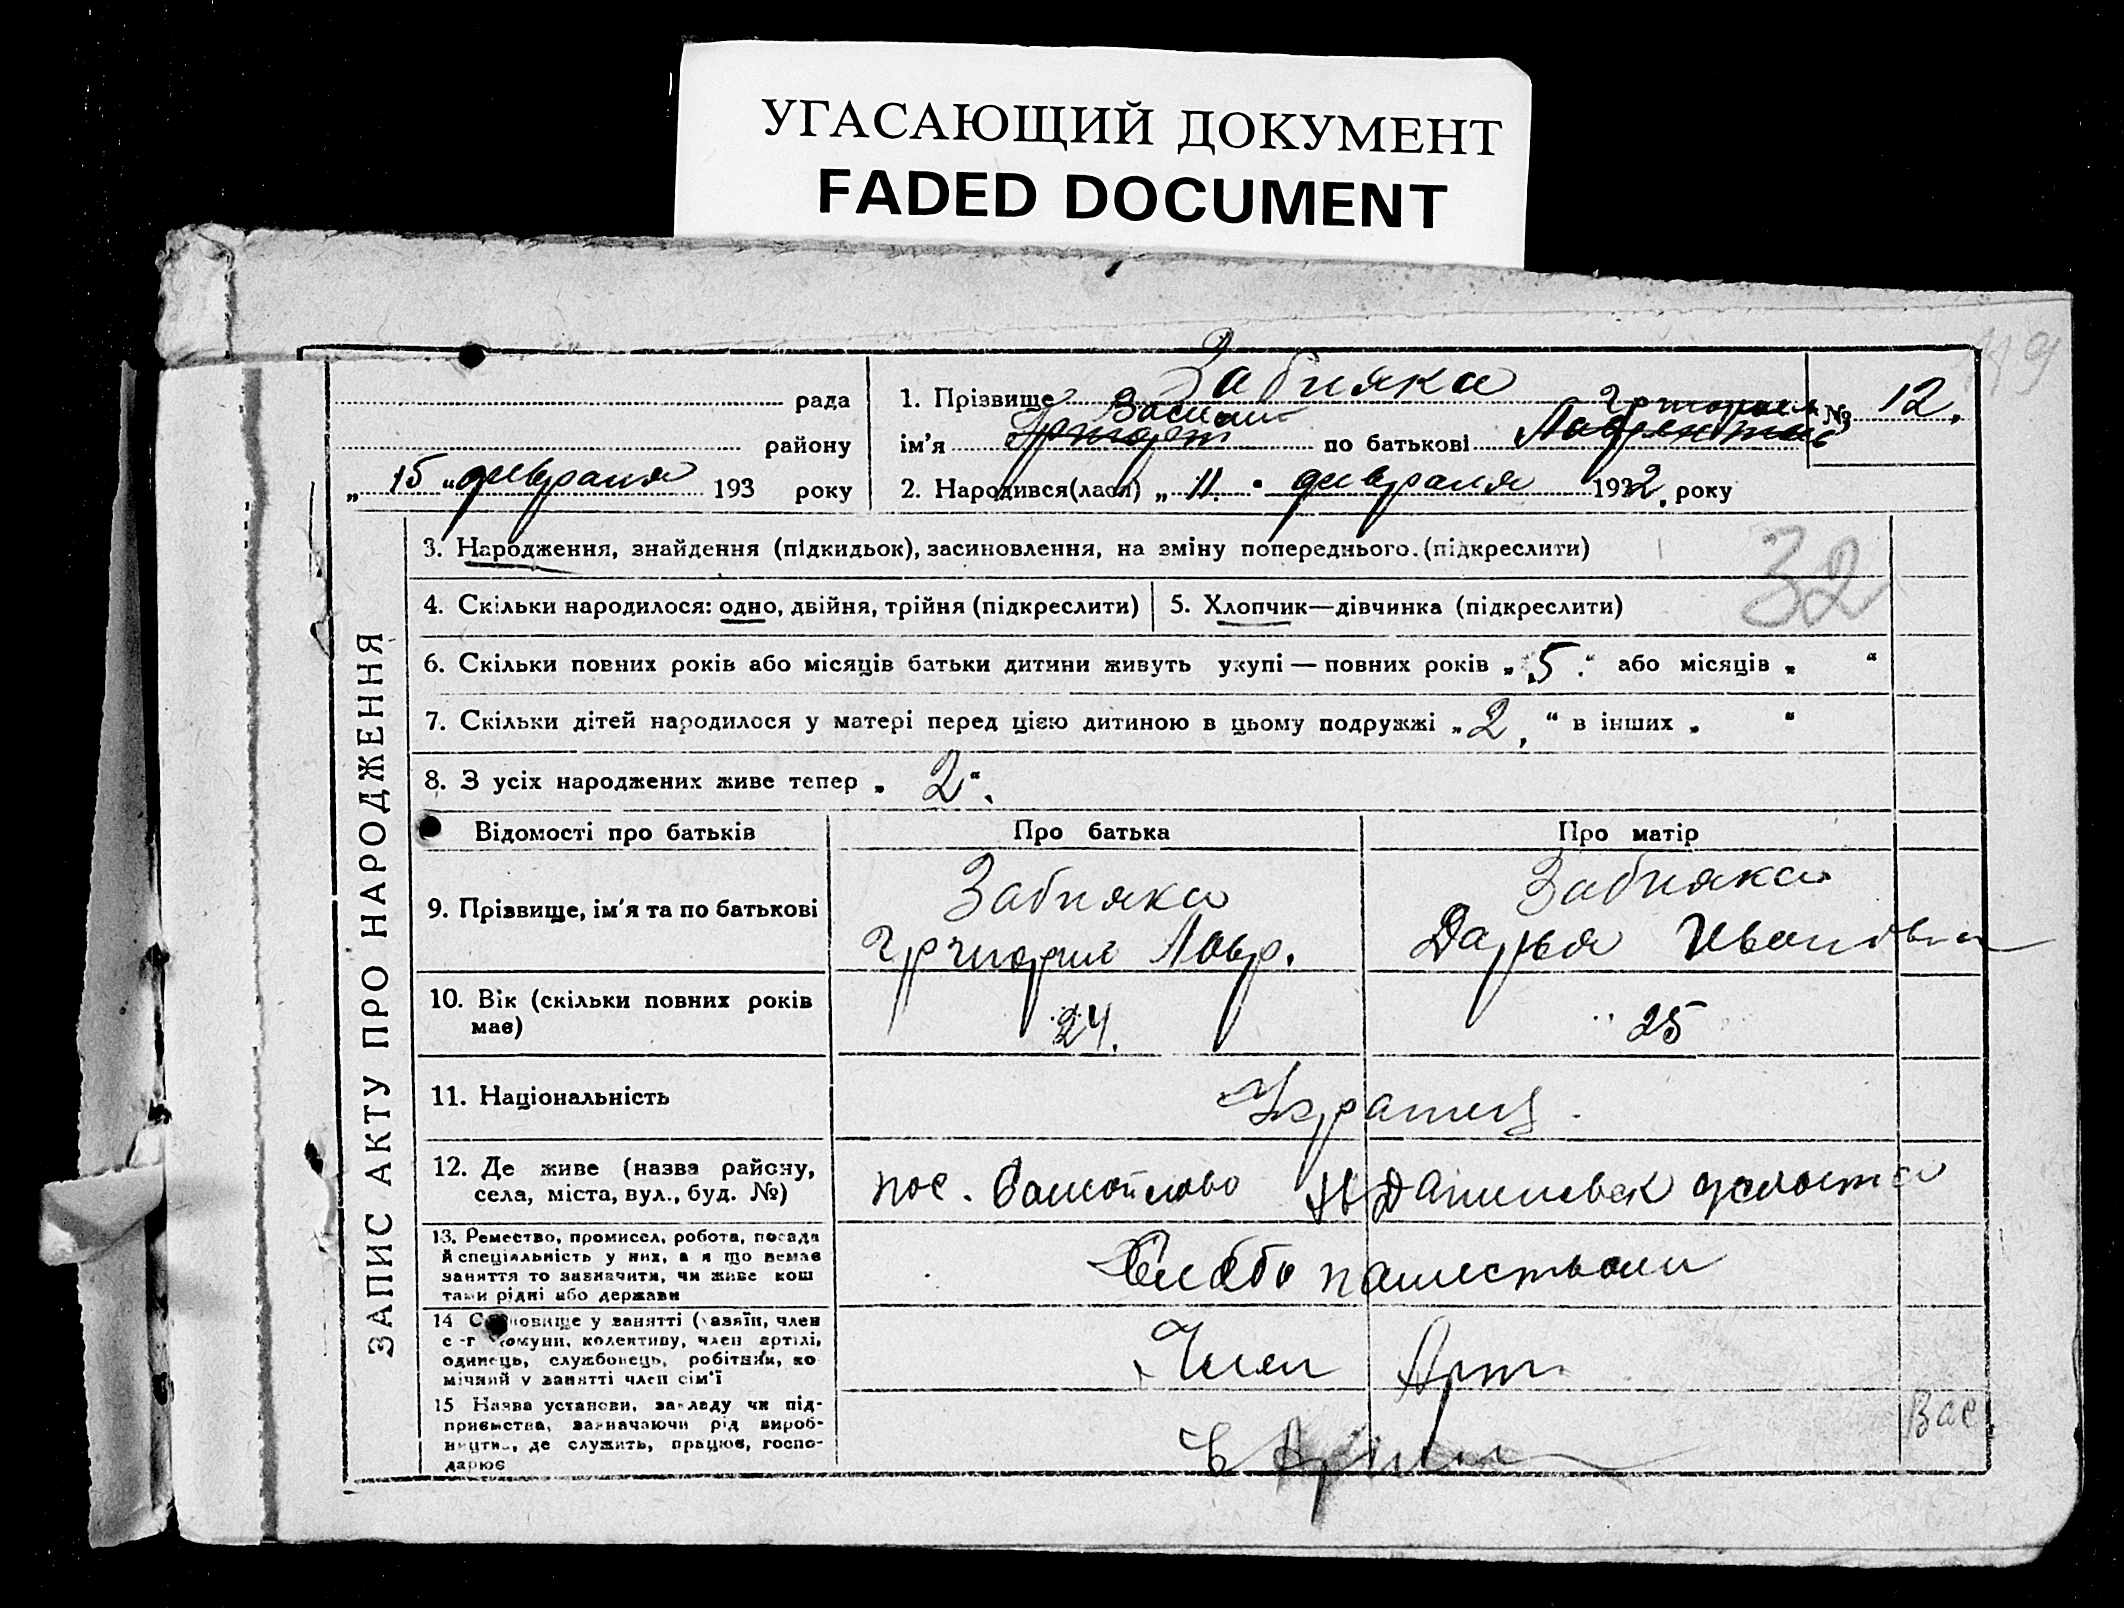 УГАСАЮЩИЙ ДОКУМЕНТ
FADED DOCUMENT
119
рада
району
„ 15 “ февраля 193 року
1. Прізвище Забияка
Василий
ім'я Григорий
Григорьев
по батькові Лаврентьев
№ 12.
2. Народився(лася) „ 11. “ февраля 1932. року
32
ЗАПИС АКТУ ПРО НАРОДЖЕННЯ
3. Народження, знайдення (підкидьок), засиновлення, на зміну попереднього. (підкреслити)
4. Скільки народилося: одно, двійня, трійня (підкреслити)
5. Хлопчик—дівчинка (підкреслити)
6. Скільки повних років або місяців батьки дитини живуть укупі — повних років „ 5. “ або місяців „ “
7. Скільки дітей народилося у матері перед цією дитиною в цьому подружжі „ 2, “ в інших „ “
8. З усіх народжених живе тепер „ 2 “.
Відомості про батьків
Про батька
Про матір
9. Прізвище, ім'я та по батькові
Забияка
Григорий Лавр.
Забияка
Дарья Ивановна
10. Вік (скільки повних років
має)
24.
25
11. Національність
Украинец.
12. Де живе (назва району,
села, міста, вул., буд. №)
пос. Самойлово
13. Ремество, промисел, робота, посада
й спеціяльність у них, а я що немає
заняття то зазначити, чи живе кош
тами рідні або держави
Хлебопашеством
14 Становище у занятті (хазяїн, член
с-г комуни, колективу, член артілі,
одинець, службовець, робітник, по
мічний у занятті член сім'ї
Член Арт.
15 Назва установи, закладу чи під-
приємства, зазначаючи рід вироб-
ництва, де служить, працює, госпо-
дарює
Вас.